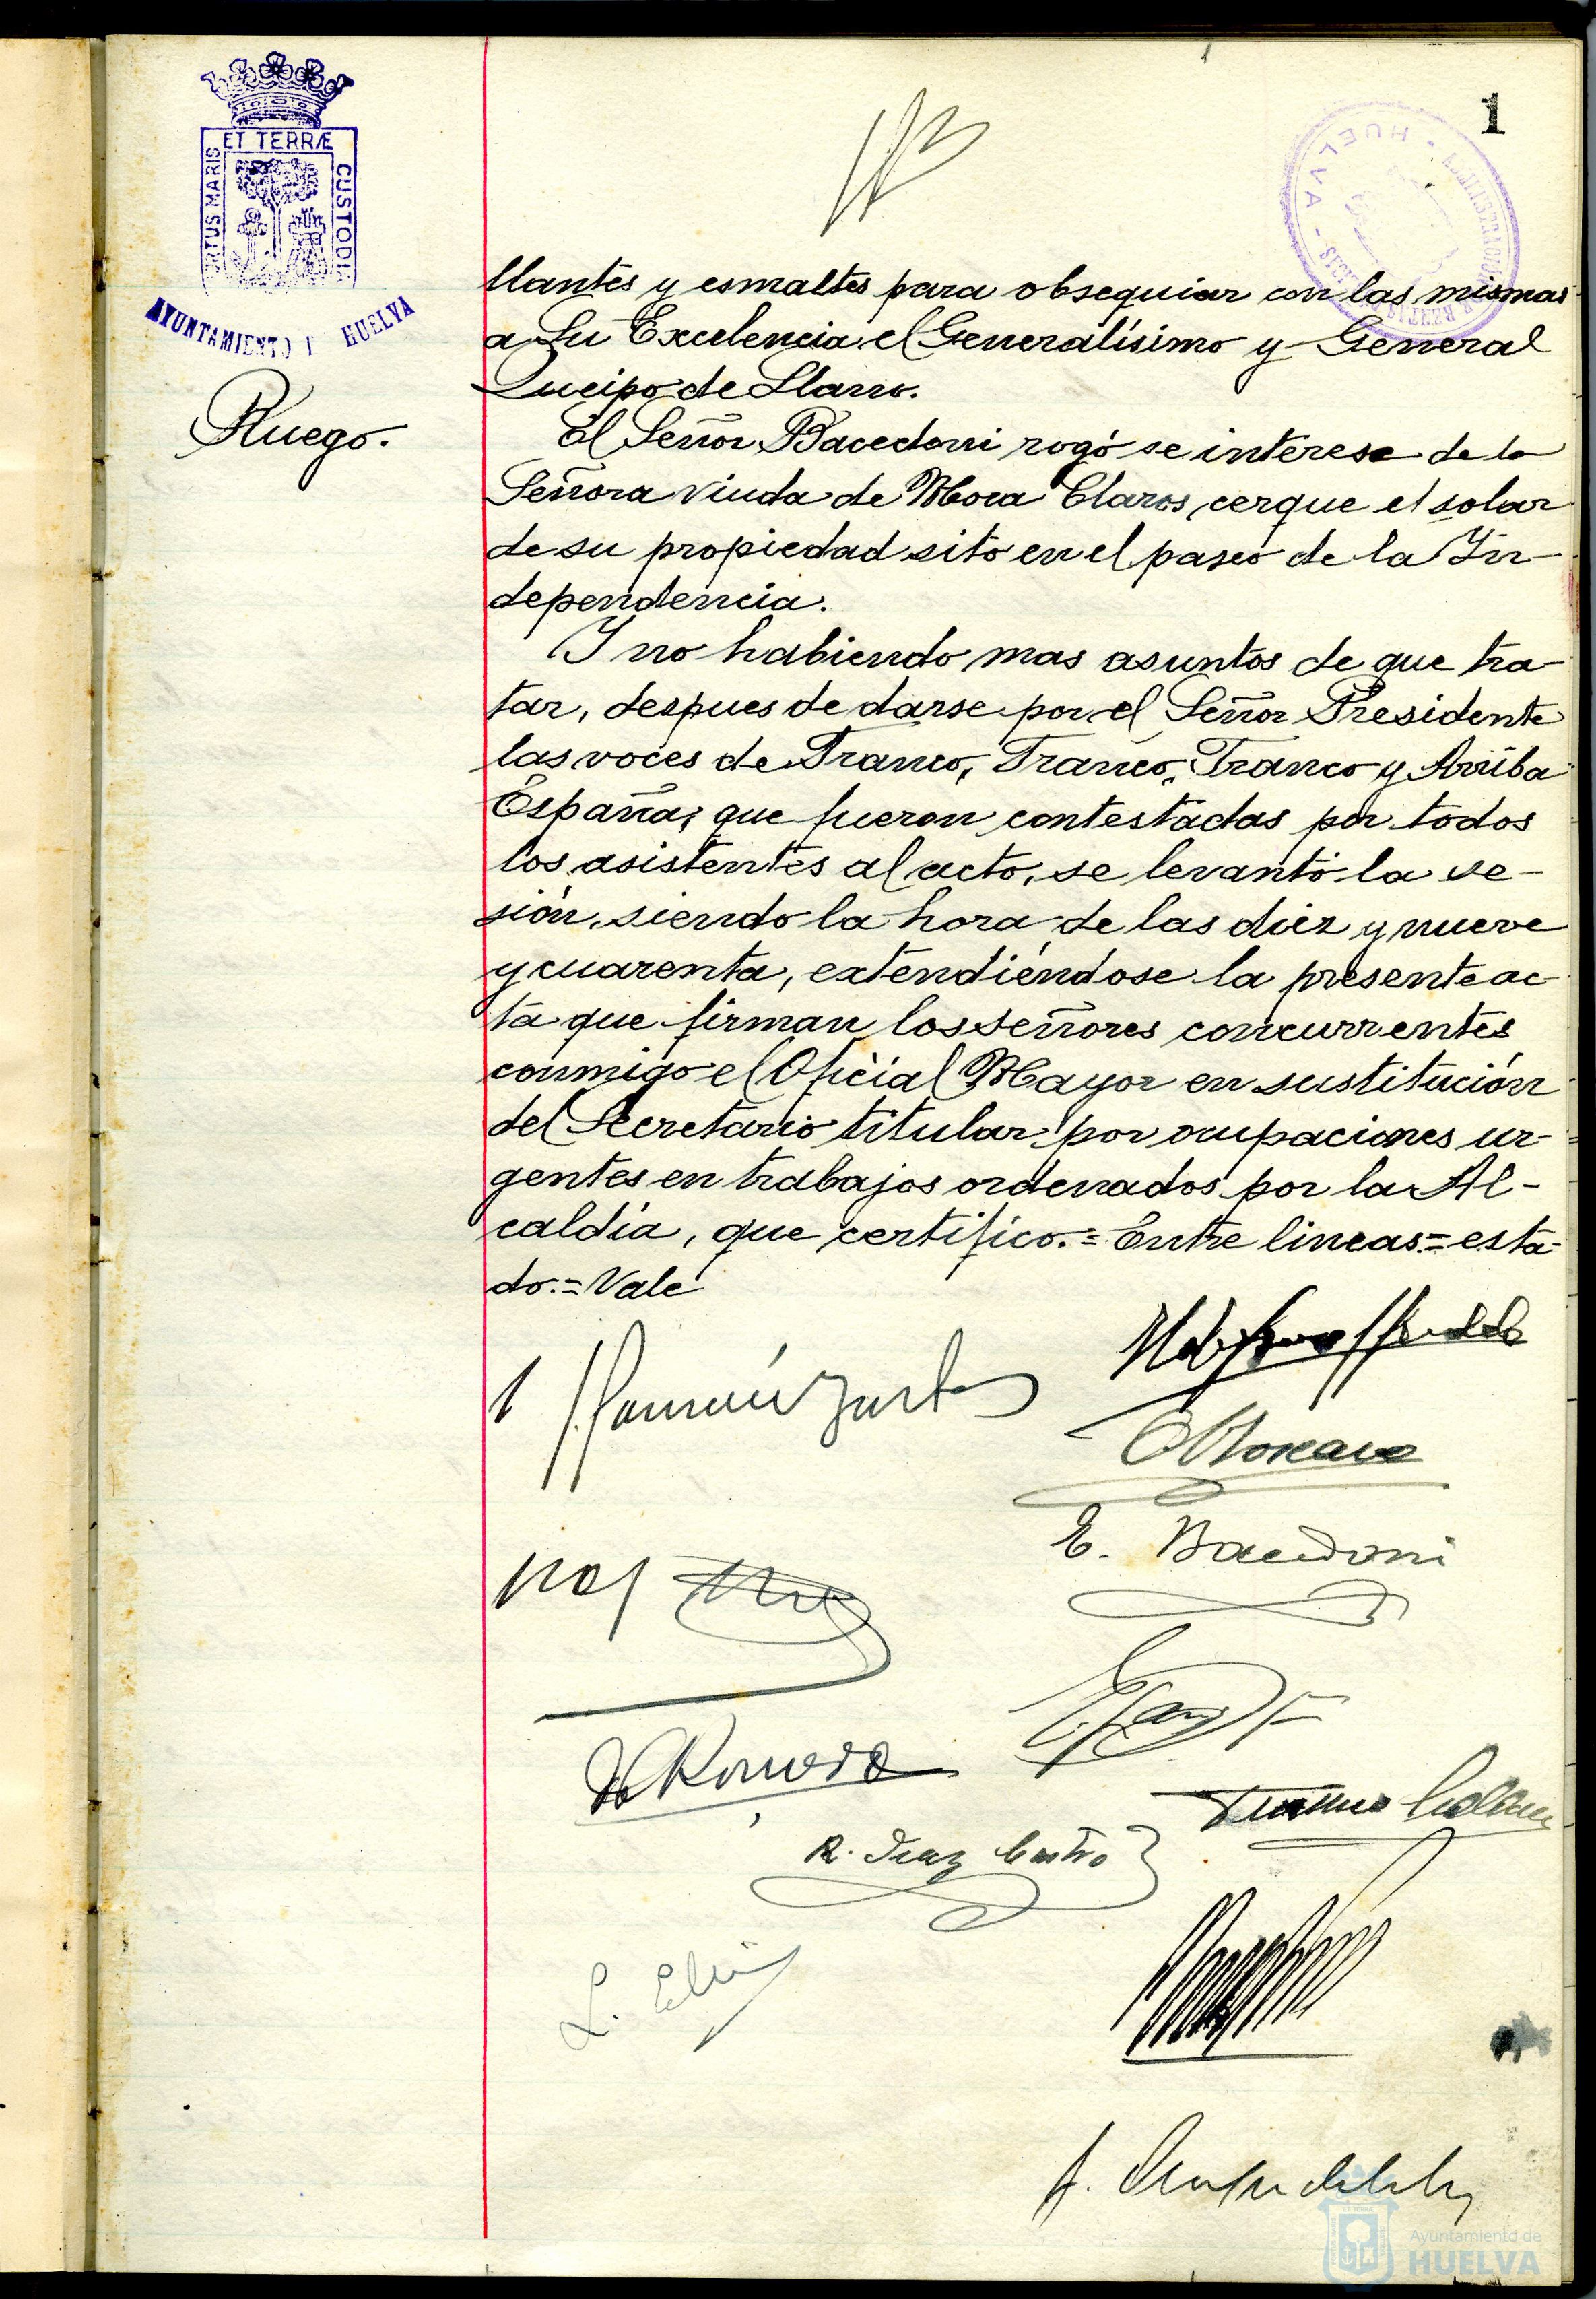 1
ET TERRÆ
PORTUS MARIS
CUSTODIA
AYUNTAMIENTO HUELVA
HUELVA
llantes y esmaltes para obsequiar con las mismas
a Su Excelencia el Generalísimo y General
Queipo de Llano.
Ruego.
El Señor Bacedoni rogó se interese de la
Señora Viuda de Mora Claros, cerque el solar
de su propiedad sito en el paseo de la In-
dependencia.
Y no habiendo mas asuntos de que tra-
tar, despues de darse por el Señor Presidente
las voces de Franco, Franco, Franco y Arriba
España, que fueron contestadas por todos
los asistentes al acto, se levantó la se-
sión, siendo la hora de las diez y nueve
y cuarenta, extendiéndose la presente ac-
ta que firman los señores concurrentes
conmigo el Oficial Mayor en sustitución
del Secretario titular por ocupaciones ur-
gentes en trabajos ordenados por la Al-
caldía, que certifico.= Entre lineas.= esta-
do.= Vale
E. Bacedoni
Romero
R. Diaz Castro
Ayuntamiento de
HUELVA